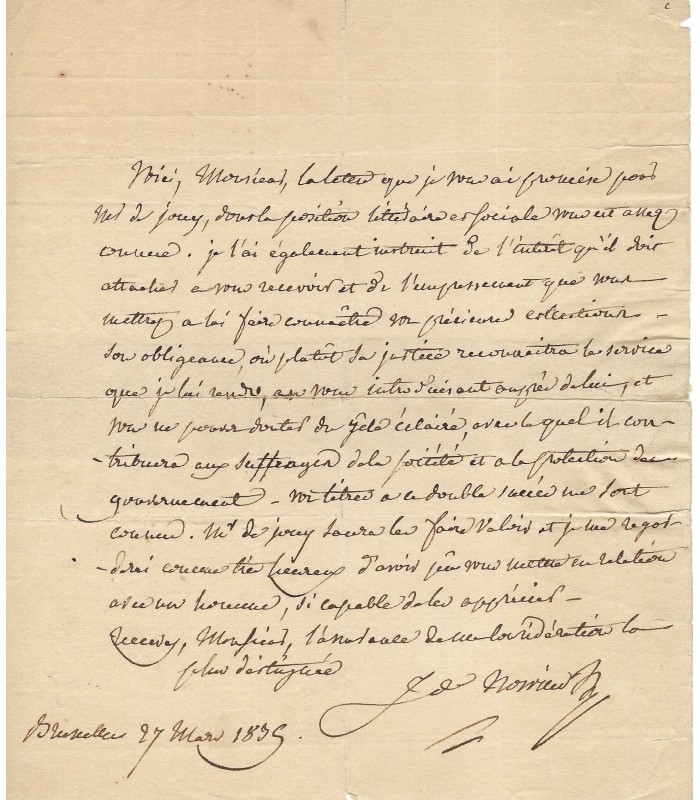 Voici, Monsieur, la lettre que je vous ai promise pour
Mr de jouy, dont la position littéraire et sociale vous est assez
connue. je l'ai également instruit de l'intérêt qu'il doit
attacher a vous recevoir et de l'empressement que vous
mettez a lui faire connaître vos précieuses collections -
son obligeance, où plutôt sa justice reconnaitra le service
que je lui rends, en vous introduisant auprès de lui, et
vous ne pouvez douter du zèle éclairé, avec le quel il con-
-tribuera aux suffrages de la société et a la protection du
gouvernement - vos titres a ce double succès me sont
connus. Mr de jouy saura les faire valoir et je me regar-
-derai comme très heureux d'avoir pû vous mettre en relation
avec un homme, si capable de les apprécier -
recevez, Monsieur, l'assurance de ma considération la
plus distinguée
J de Norvins
Bruxelles 27 Mars 1835.